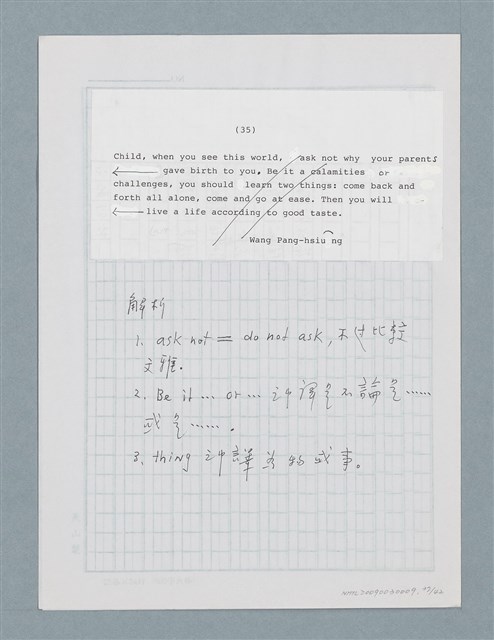 (35)
Child, when you see this world, ask not why your parents
gave birth to you. Be it a calamities or
challenges, you should learn two things: come back and
forth all alone, come and go at ease. Then you will
live a life according to good taste.
Wang Pang-hsiung
解析
1. ask not = do not ask, 不过比較
文雅.
2. Be it … or … 之中譯是不論是……
或是…….
3. thing 之中譯為物或事。
NMTL20090030009